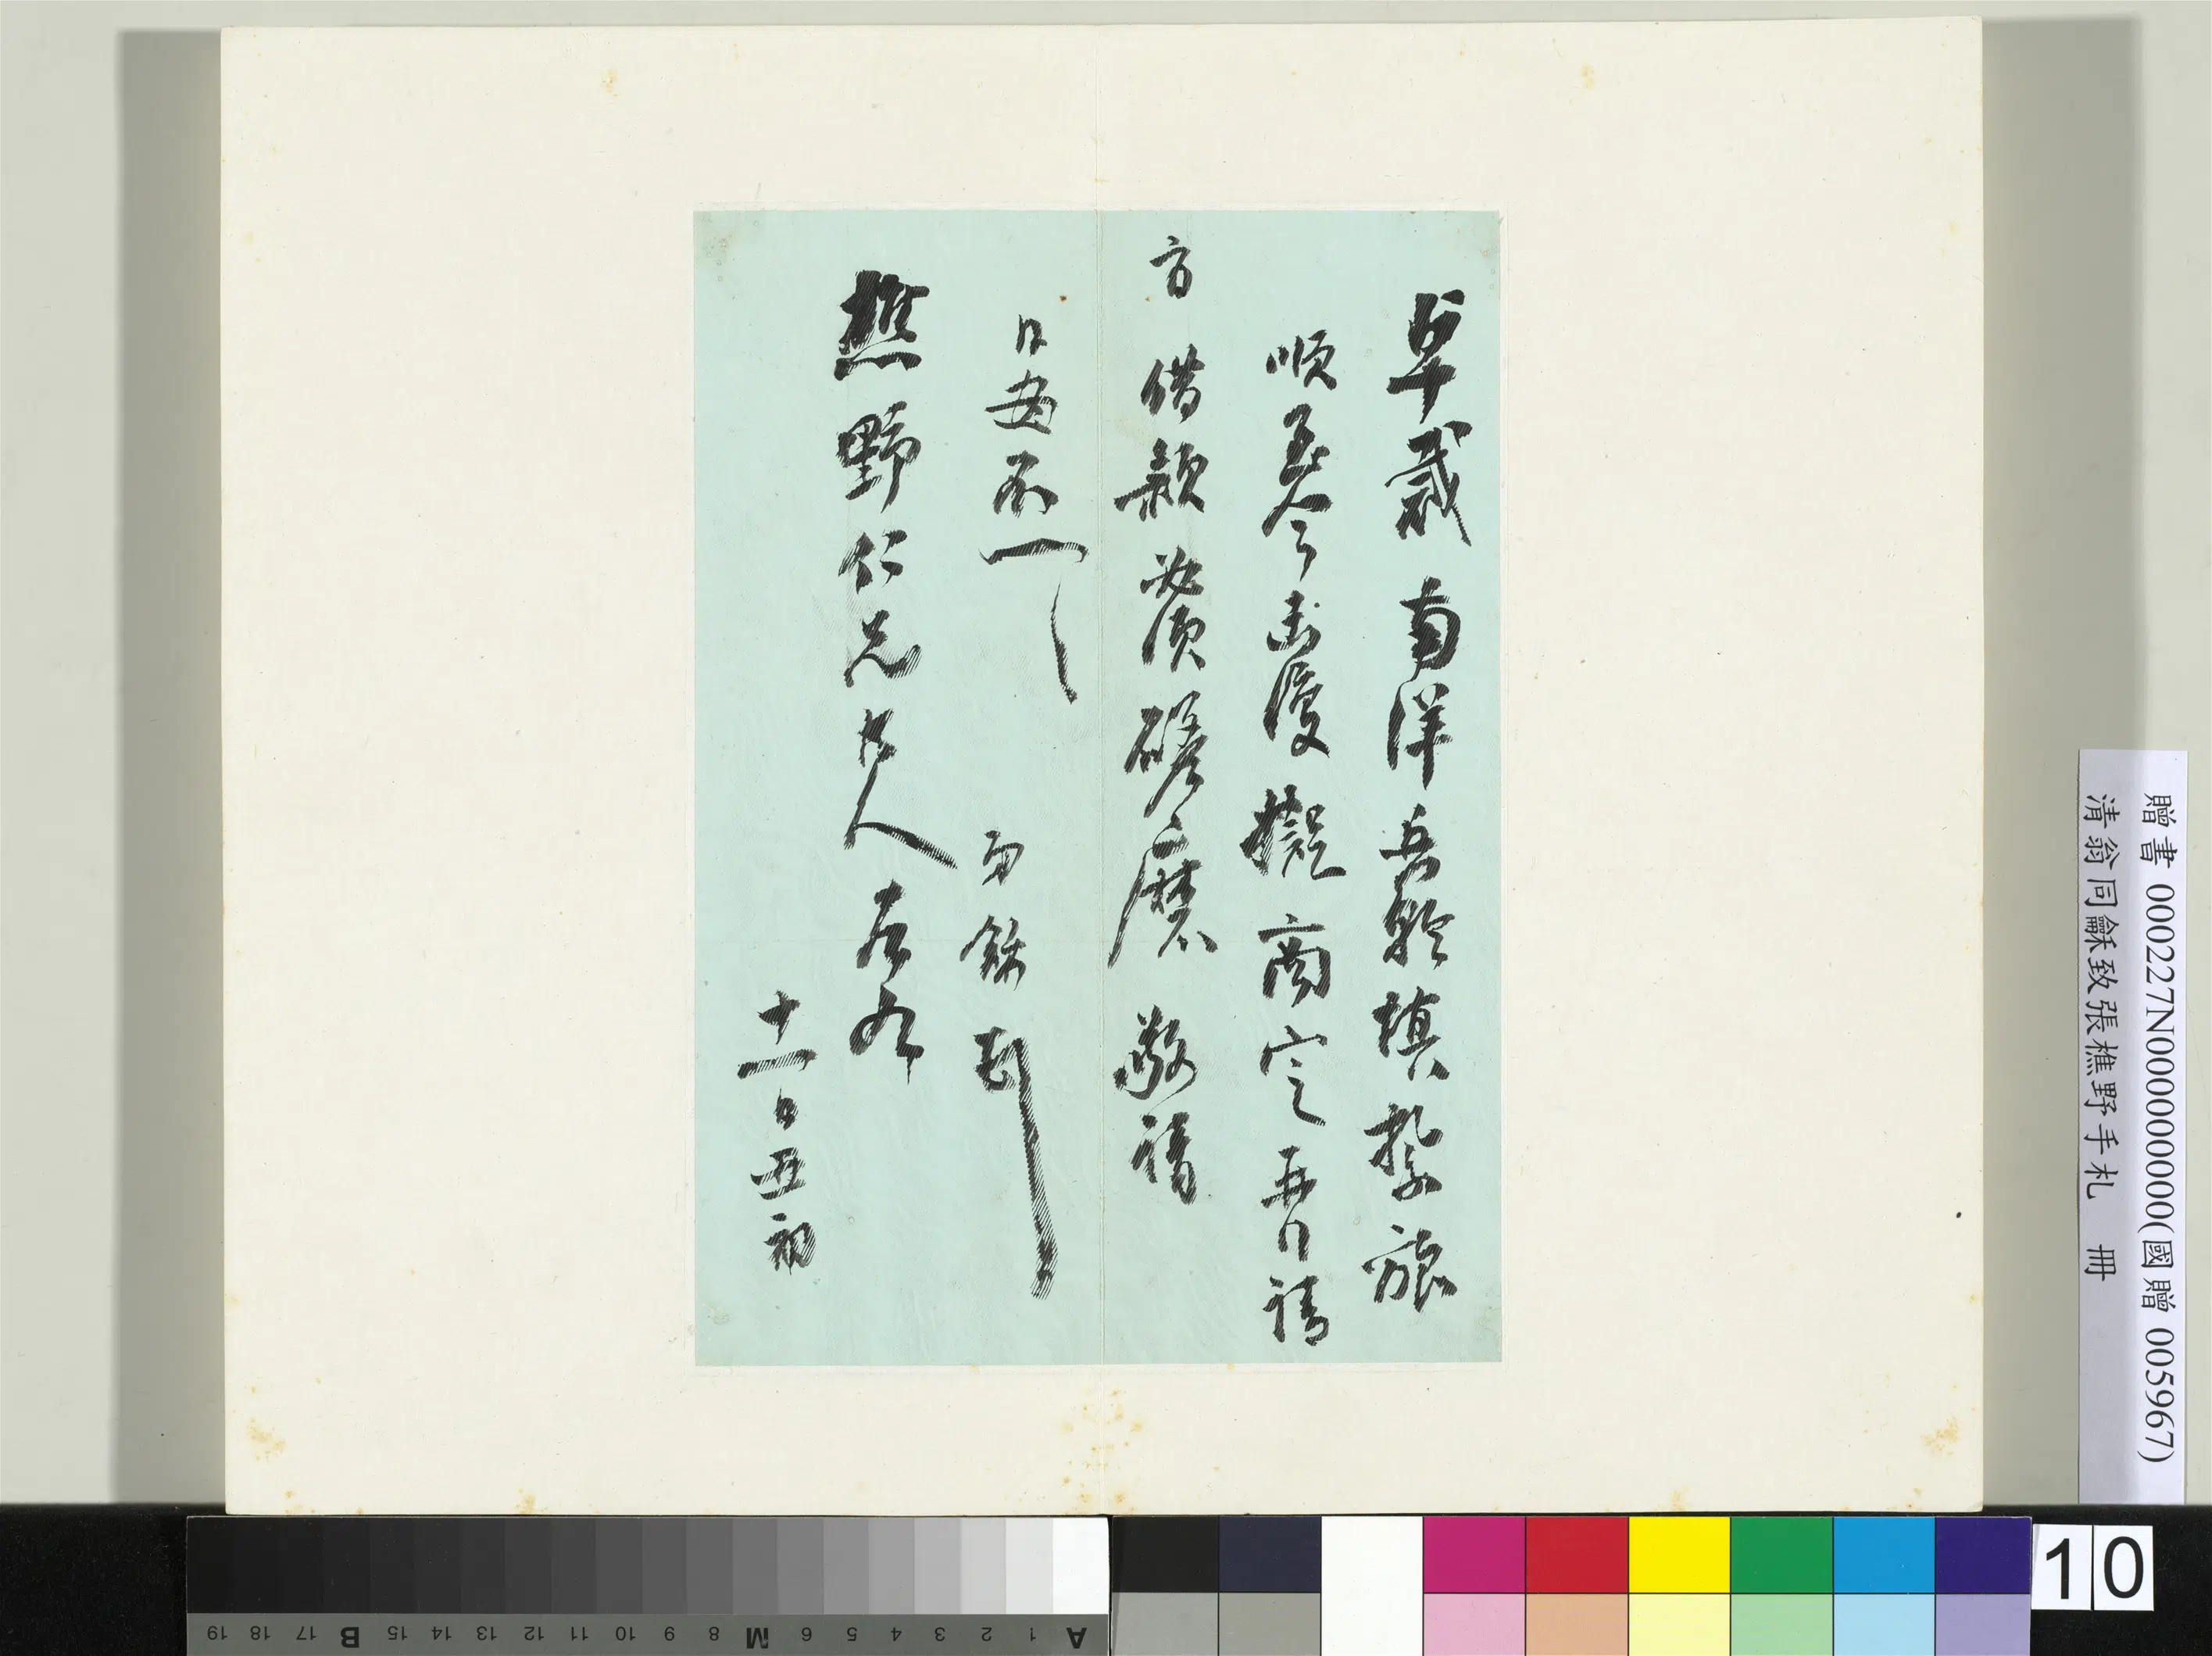 卓裁 南洋兵輪填紮旅
順 函復擬商定再行請
旨 借款必須磋磨 敬請
日安不一一
樵野仁兄大人左右
十一日丑初
贈書 000227N000000000(國贈 005967)
清翁同龢致張樵野手札 冊
A 1 2 3 4 5 6 M 8 9 10 11 12 13 14 15 B 17 18 19
10